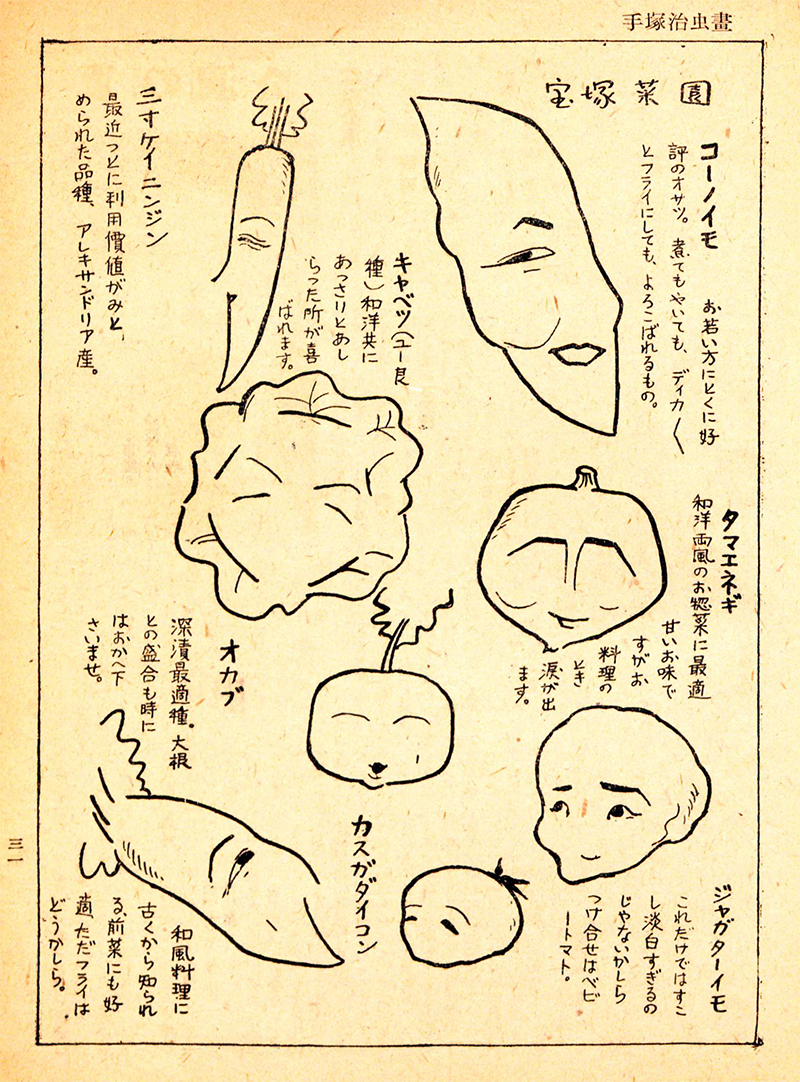 手塚治虫畫
宝塚菜園
コーノイモ
お若い方にとくに好
評のオサツ。煮てもやいても、ディカ〱
とフライにしても、よろこばれるもの。
タマエネギ
和洋両風のお惣菜に最適
甘いお味で
すがお
料理の
とき
涙が出
ます。
ジャガターイモ
これだけではすこ
し淡白すぎるの
じゃないかしら
つけ合せはベビ
ートマト。
三寸ケイニンジン
最近つとに利用價値がみと
められた品種、アレキサンドリア産。
キャベツ(ユー良
種)和洋共に
あっさりとあし
らった所が喜
ばれます。
オカブ
深漬最適種。大根
との盛合も時に
はおかへ下
さいませ。
カスガダイコン
和風料理に
古くから知られ
る、前菜にも好
適、ただフライは
どうかしら。
三一